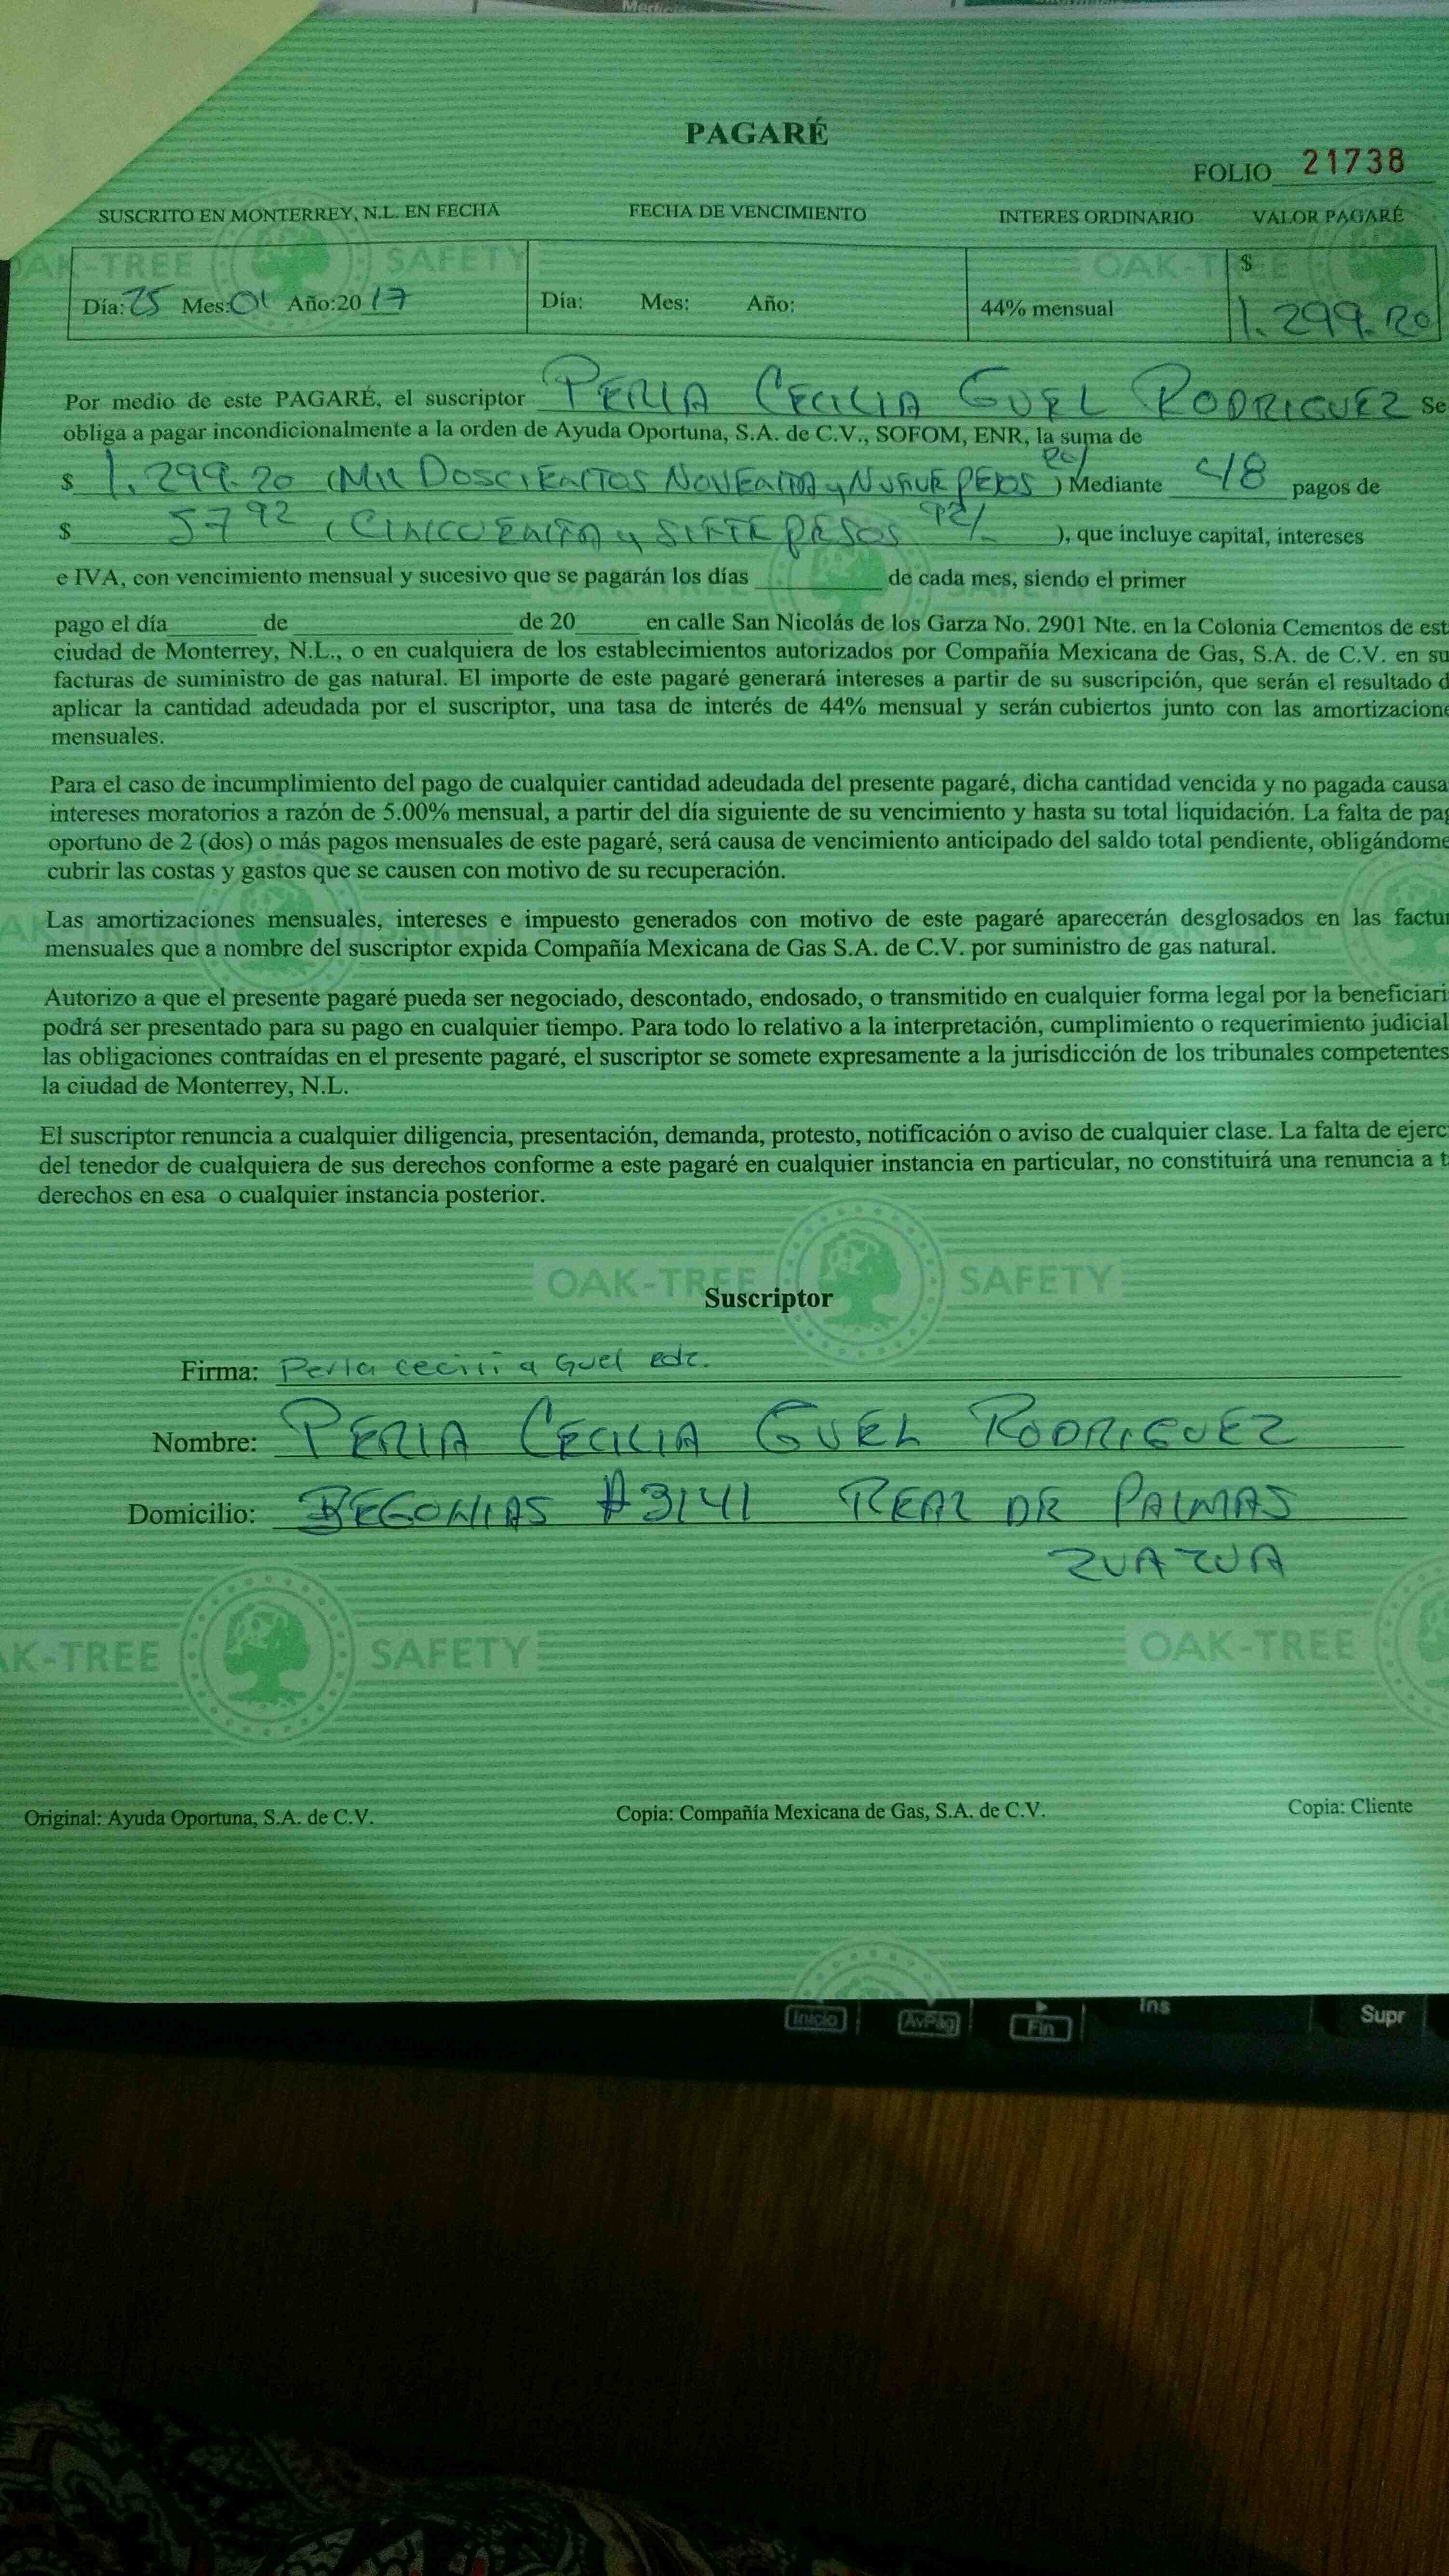 PAGARÉ
FOLIO 21738
SUSCRITO EN MONTERREY, N.L. EN FECHA FECHA DE VENCIMIENTO INTERES ORDINARIO VALOR PAGARÉ
OAK-TREE SAFETY OAK-T
$
Día: 25 Mes: 01 Año:20 17 Día: Mes: Año: 44% mensual 1.299.20
Por medio de este PAGARÉ, el suscriptor PERLA CECILIA GUEL RODRIGUEZ Se
obliga a pagar incondicionalmente a la orden de Ayuda Oportuna, S.A. de C.V., SOFOM, ENR, la suma de
$ 1.299.20 (MIL DOSCIENTOS NOVENTA y NUEVE PESOS 20/ ) Mediante 48 pagos de
$ 57 92 (CINCUENTA y SIETE PESOS 92/ ), que incluye capital, intereses
e IVA, con vencimiento mensual y sucesivo que se pagarán los días de cada mes, siendo el primer
pago el día de de 20 en calle San Nicolás de los Garza No. 2901 Nte. en la Colonia Cementos de est
ciudad de Monterrey, N.L., o en cualquiera de los establecimientos autorizados por Compañía Mexicana de Gas, S.A. de C.V. en su
facturas de suministro de gas natural. El importe de este pagaré generará intereses a partir de su suscripción, que serán el resultado d
aplicar la cantidad adeudada por el suscriptor, una tasa de interés de 44% mensual y serán cubiertos junto con las amortizacione
mensuales.
Para el caso de incumplimiento del pago de cualquier cantidad adeudada del presente pagaré, dicha cantidad vencida y no pagada causa
intereses moratorios a razón de 5.00% mensual, a partir del día siguiente de su vencimiento y hasta su total liquidación. La falta de pag
oportuno de 2 (dos) o más pagos mensuales de este pagaré, será causa de vencimiento anticipado del saldo total pendiente, obligándome
cubrir las costas y gastos que se causen con motivo de su recuperación.
Las amortizaciones mensuales, intereses e impuesto generados con motivo de este pagaré aparecerán desglosados en las factur
mensuales que a nombre del suscriptor expida Compañía Mexicana de Gas S.A. de C.V. por suministro de gas natural.
Autorizo a que el presente pagaré pueda ser negociado, descontado, endosado, o transmitido en cualquier forma legal por la beneficiari
podrá ser presentado para su pago en cualquier tiempo. Para todo lo relativo a la interpretación, cumplimiento o requerimiento judicial
las obligaciones contraídas en el presente pagaré, el suscriptor se somete expresamente a la jurisdicción de los tribunales competentes
la ciudad de Monterrey, N.L.
El suscriptor renuncia a cualquier diligencia, presentación, demanda, protesto, notificación o aviso de cualquier clase. La falta de ejerc
del tenedor de cualquiera de sus derechos conforme a este pagaré en cualquier instancia en particular, no constituirá una renuncia a t
derechos en esa o cualquier instancia posterior.
OAK-TREE SAFETY
Suscriptor
Firma: Perla Cecilia Guel
Nombre: PERLA CECILIA GUEL RODRIGUEZ
Domicilio: BEGONIAS #3141 REAL DE PALMAS
ZUAZUA
AK-TREE SAFETY OAK-TREE
Original: Ayuda Oportuna, S.A. de C.V. Copia: Compañía Mexicana de Gas, S.A. de C.V. Copia: Cliente
Inicio AvPág Fin Ins Supr